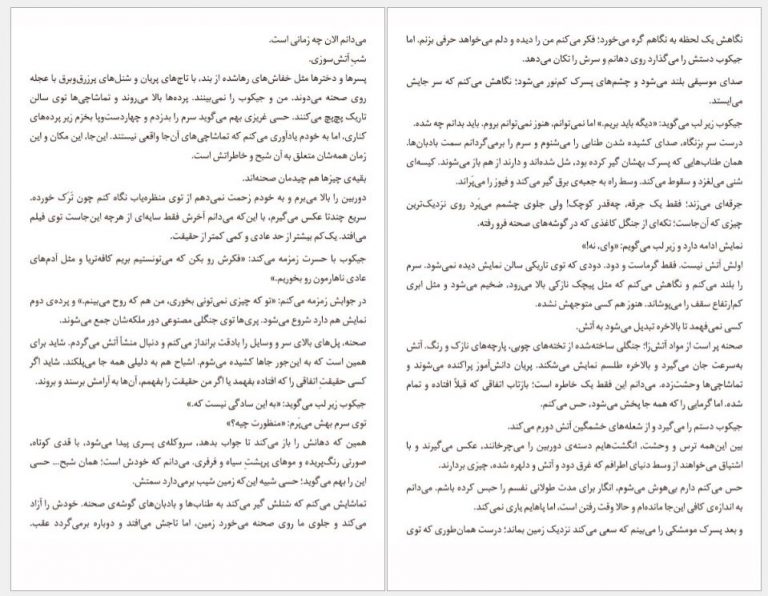 نگاهش یک لحظه به نگاهم گره می‌خورد؛ فکر می‌کنم من را دیده و دلم می‌خواهد حرفی بزنم. اما
جیکوب دستش را می‌گذارد روی دهانم و سرش را تکان می‌دهد.
صدای موسیقی بلند می‌شود و چشم‌های پسرک کم‌نور می‌شود؛ نگاهش می‌کنم که سر جایش
می‌ایستد.
جیکوب زیر لب می‌گوید: «دیگه باید بریم.» اما نمی‌توانم. هنوز نمی‌توانم بروم. باید بدانم چه شده.
درست سر بزنگاه، صدای کشیده شدن طنابی را می‌شنوم و سرم را برمی‌گردانم سمت بادبان‌ها.
همان طناب‌هایی که پسرک بهشان گیر کرده بود، شل شده‌اند و دارند از هم باز می‌شوند. کیسه‌ای
شنی می‌لغزد و سقوط می‌کند. وسط راه به جعبه‌ی برق گیر می‌کند و فیوز را می‌پراند.
جرقه‌ای می‌زند؛ فقط یک جرقه، چه‌قدر کوچک! ولی جلوی چشمم می‌پرد روی نزدیک‌ترین
چیزی که آن‌جاست؛ تکه‌ای از جنگل کاغذی که در گوشه‌های صحنه فرو رفته.
نمایش ادامه دارد و زیر لب می‌گویم: «وای، نه!»
اولش آتش نیست. فقط گرماست و دود. دودی که توی تاریکی سالن نمایش دیده نمی‌شود. سرم
را بلند می‌کنم و نگاهش می‌کنم که مثل پیچک نازکی بالا می‌رود، ضخیم می‌شود و مثل ابری
کم‌ارتفاع سقف را می‌پوشاند. هنوز هم کسی متوجهش نشده.
کسی نمی‌فهمد تا بالاخره تبدیل می‌شود به آتش.
صحنه پر است از مواد آتش‌زا؛ جنگلی ساخته‌شده از تخته‌های چوبی، پارچه‌های نازک و رنگ. آتش
به‌سرعت جان می‌گیرد و بالاخره طلسم نمایش می‌شکند. پریان دانش‌آموز پراکنده می‌شوند و
تماشاچی‌ها وحشت‌زده. می‌دانم این فقط یک خاطره است؛ بازتاب اتفاقی که قبلاً افتاده و تمام
شده. اما گرمایی را که همه جا پخش می‌شود، حس می‌کنم.
جیکوب دستم را می‌گیرد و از شعله‌های خشمگین آتش دورم می‌کند.
بین این‌همه ترس و وحشت، انگشت‌هایم دسته‌ی دوربین را می‌چرخانند. عکس می‌گیرند و با
اشتیاق می‌خواهند از وسط دنیای اطرافم که غرق دود و آتش و دلهره شده، چیزی بردارند.
حس می‌کنم دارم بی‌هوش می‌شوم، انگار برای مدت طولانی نفسم را حبس کرده باشم. می‌دانم
به اندازه‌ی کافی این‌جا مانده‌ام و حالا وقت رفتن است، اما پاهایم یاری نمی‌کند.
و بعد پسرک مومشکی را می‌بینم که سعی می‌کند نزدیک زمین بماند؛ درست همان‌طوری که توی
می‌دانم الان چه زمانی است.
شبِ آتش‌سوزی.
پسرها و دخترها مثل خفاش‌های رهاشده از بند، با تاج‌های پریان و شنل‌های پرزرق‌وبرق با عجله
روی صحنه می‌دوند. من و جیکوب را نمی‌بینند. پرده‌ها بالا می‌روند و تماشاچی‌ها توی سالن
تاریک پچ‌پچ می‌کنند. حسی غریزی بهم می‌گوید سرم را بدزدم و چهاردست‌وپا بخزم زیر پرده‌های
کناری، اما به خودم یادآوری می‌کنم که تماشاچی‌های آن‌جا واقعی نیستند. این‌جا، این مکان و این
زمان همه‌شان متعلق به آن شبح و خاطراتش است.
بقیه‌ی چیزها هم چیدمان صحنه‌اند.
دوربین را بالا می‌برم و به خودم زحمت نمی‌دهم از توی منظره‌یاب نگاه کنم چون تَرَک خورده.
سریع چندتا عکس می‌گیرم، با این‌که می‌دانم آخرش فقط سایه‌ای از هرچه این‌جاست توی فیلم
می‌افتد. یک‌کم بیشتر از حد عادی و کمی کمتر از حقیقت.
جیکوب با حسرت زمزمه می‌کند: «فکرش رو بکن که می‌تونستیم بریم کافه‌تریا و مثل آدم‌های
عادی ناهارمون رو بخوریم.»
در جوابش زمزمه می‌کنم: «تو که چیزی نمی‌تونی بخوری، من هم که روح می‌بینم.» و پرده‌ی دوم
نمایش هم دارد شروع می‌شود. پری‌ها توی جنگلی مصنوعی دور ملکه‌شان جمع می‌شوند.
صحنه، پل‌های بالای سر و وسایل را بادقت برانداز می‌کنم و دنبال منشأ آتش می‌گردم. شاید برای
همین است که به این‌جور جاها کشیده می‌شوم. اشباح هم به دلیلی همه جا می‌پلکند. شاید اگر
کسی حقیقتِ اتفاقی را که افتاده بفهمد یا اگر من حقیقت را بفهمم، آن‌ها به آرامش برسند و بروند.
جیکوب زیر لب می‌گوید: «به این سادگی نیست که.»
توی سرم بهش می‌پرم: «منظورت چیه؟»
همین که دهانش را باز می‌کند تا جواب بدهد، سروکله‌ی پسری پیدا می‌شود، با قدی کوتاه،
صورتی رنگ‌پریده و موهای پرپشت سیاه و فرفری. می‌دانم که خودش است؛ همان شبح... حسی
این را بهم می‌گوید؛ حسی شبیه این‌که زمین شیب برمی‌دارد سمتش.
تماشایش می‌کنم که شنلش گیر می‌کند به طناب‌ها و بادبان‌های گوشه‌ی صحنه. خودش را آزاد
می‌کند و جلوی ما روی صحنه می‌خورد زمین، اما تاجش می‌افتد و دوباره برمی‌گردد عقب.